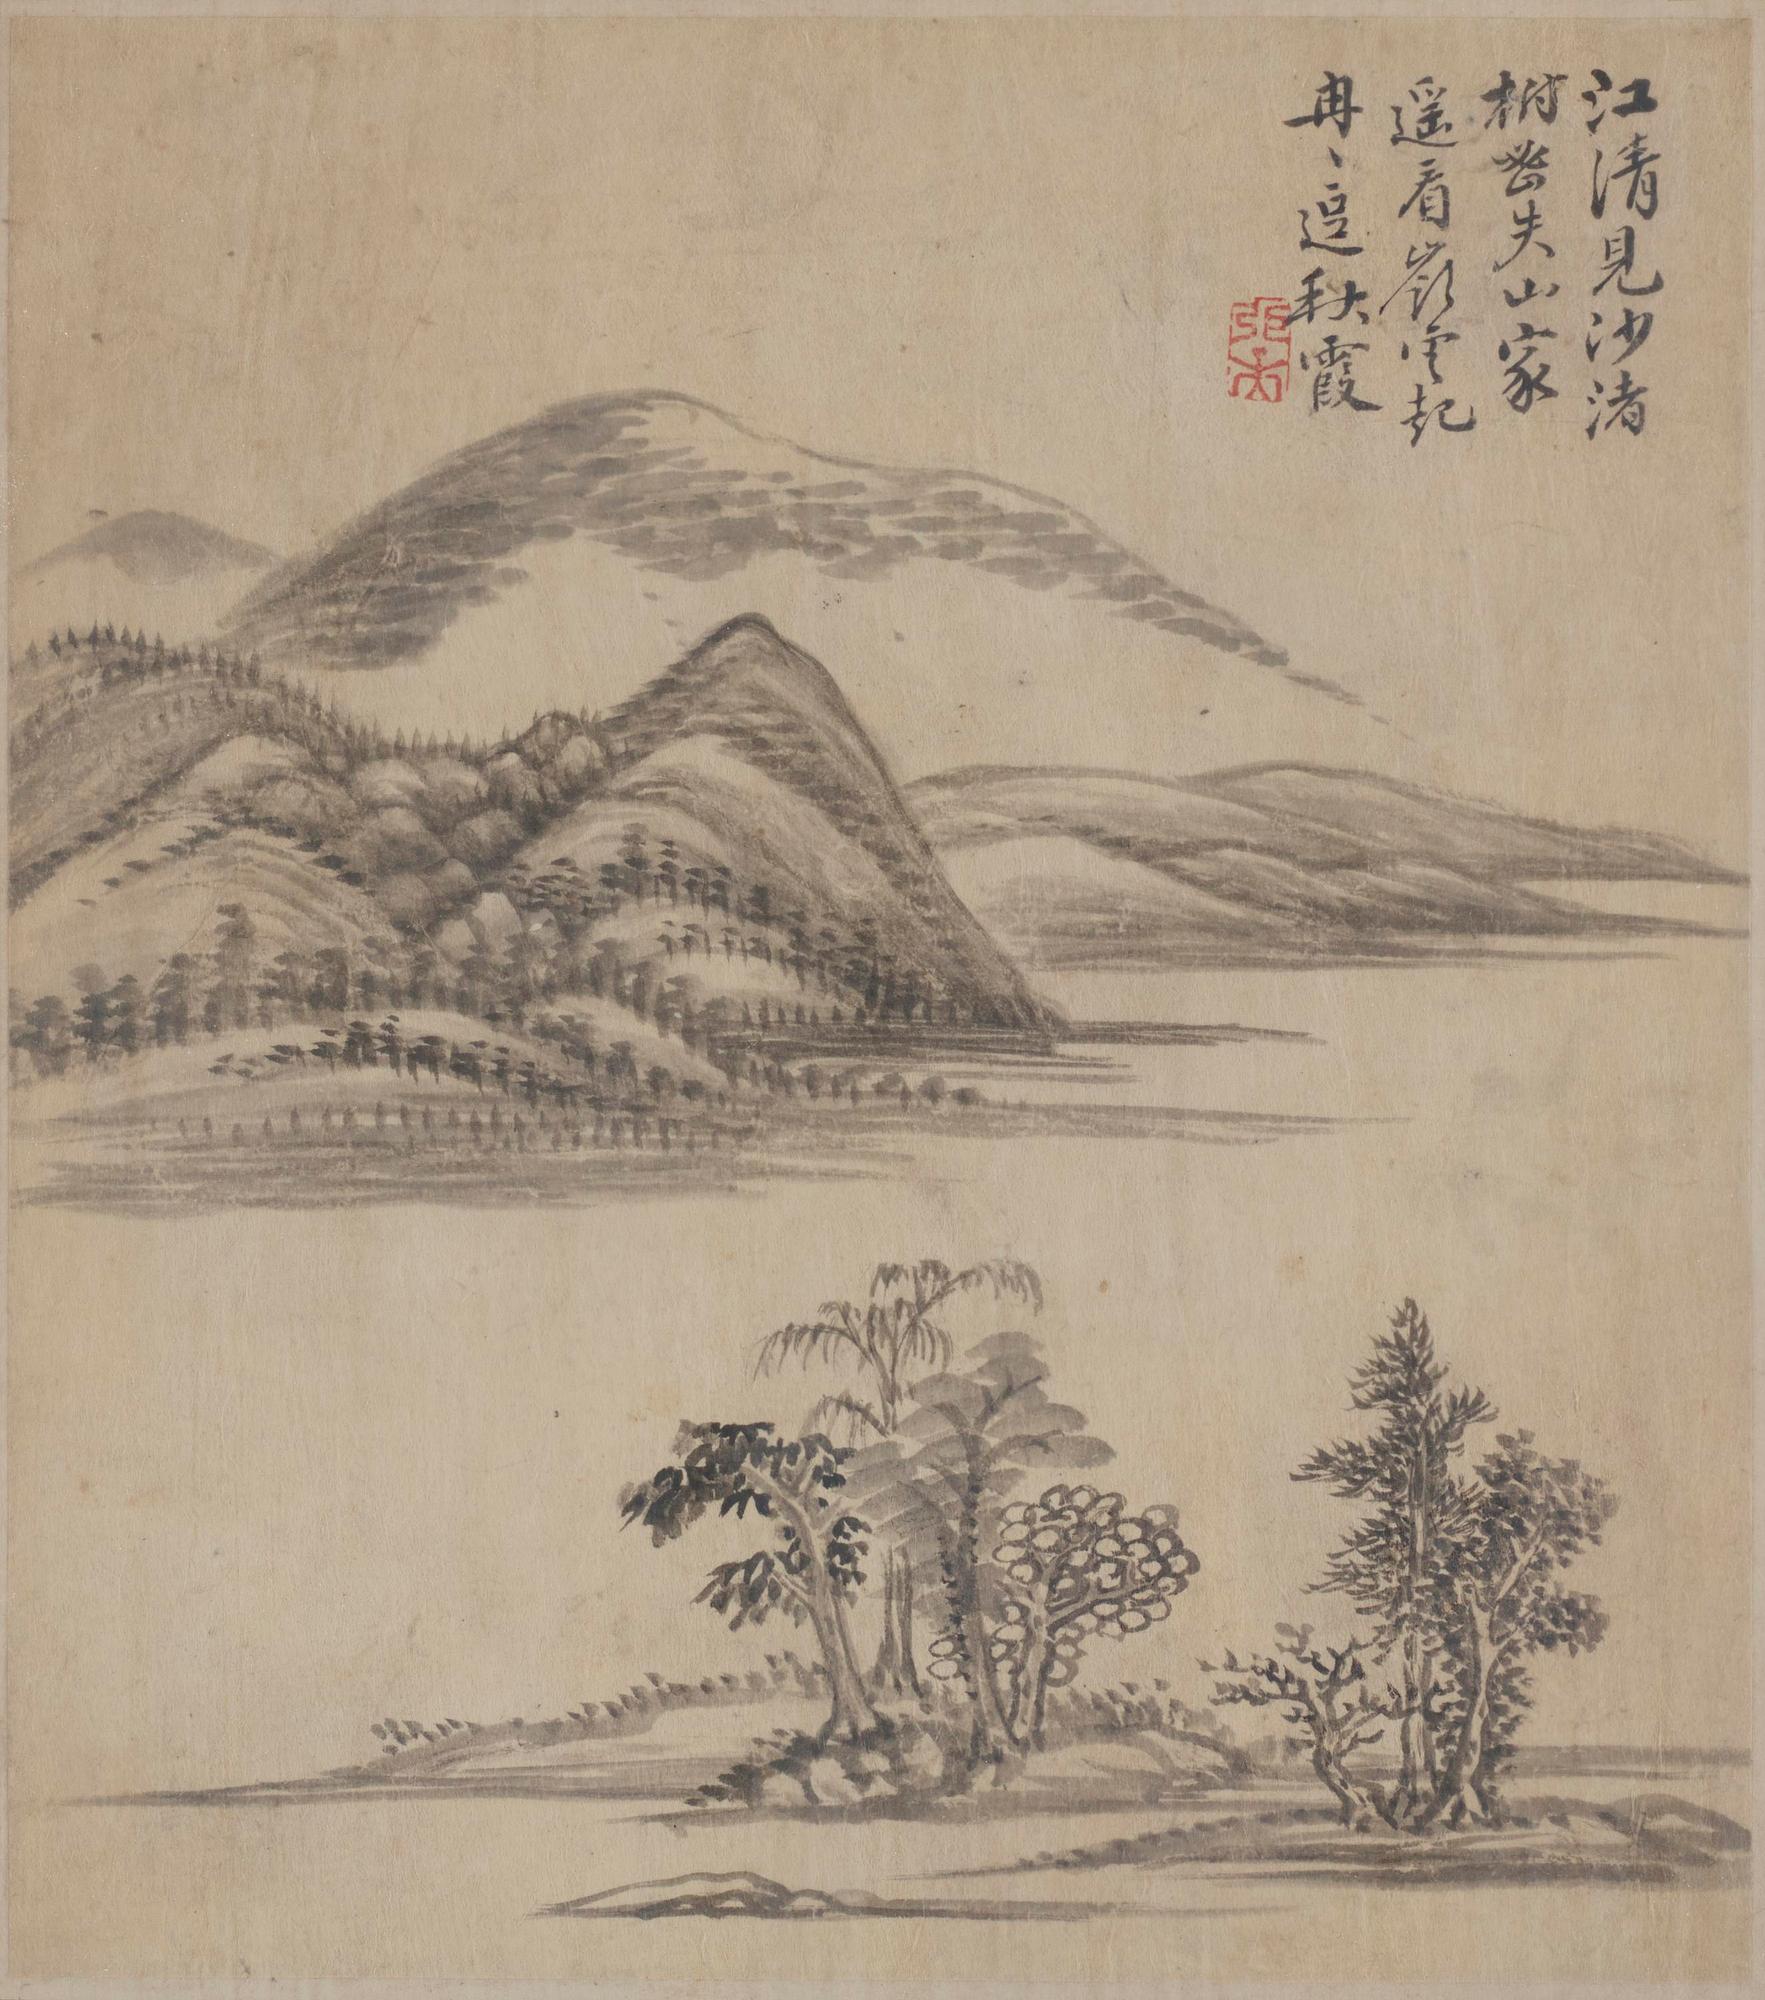 江清見沙渚
樹密失山家
遥看嶺雲起
冉〻逗秋霞